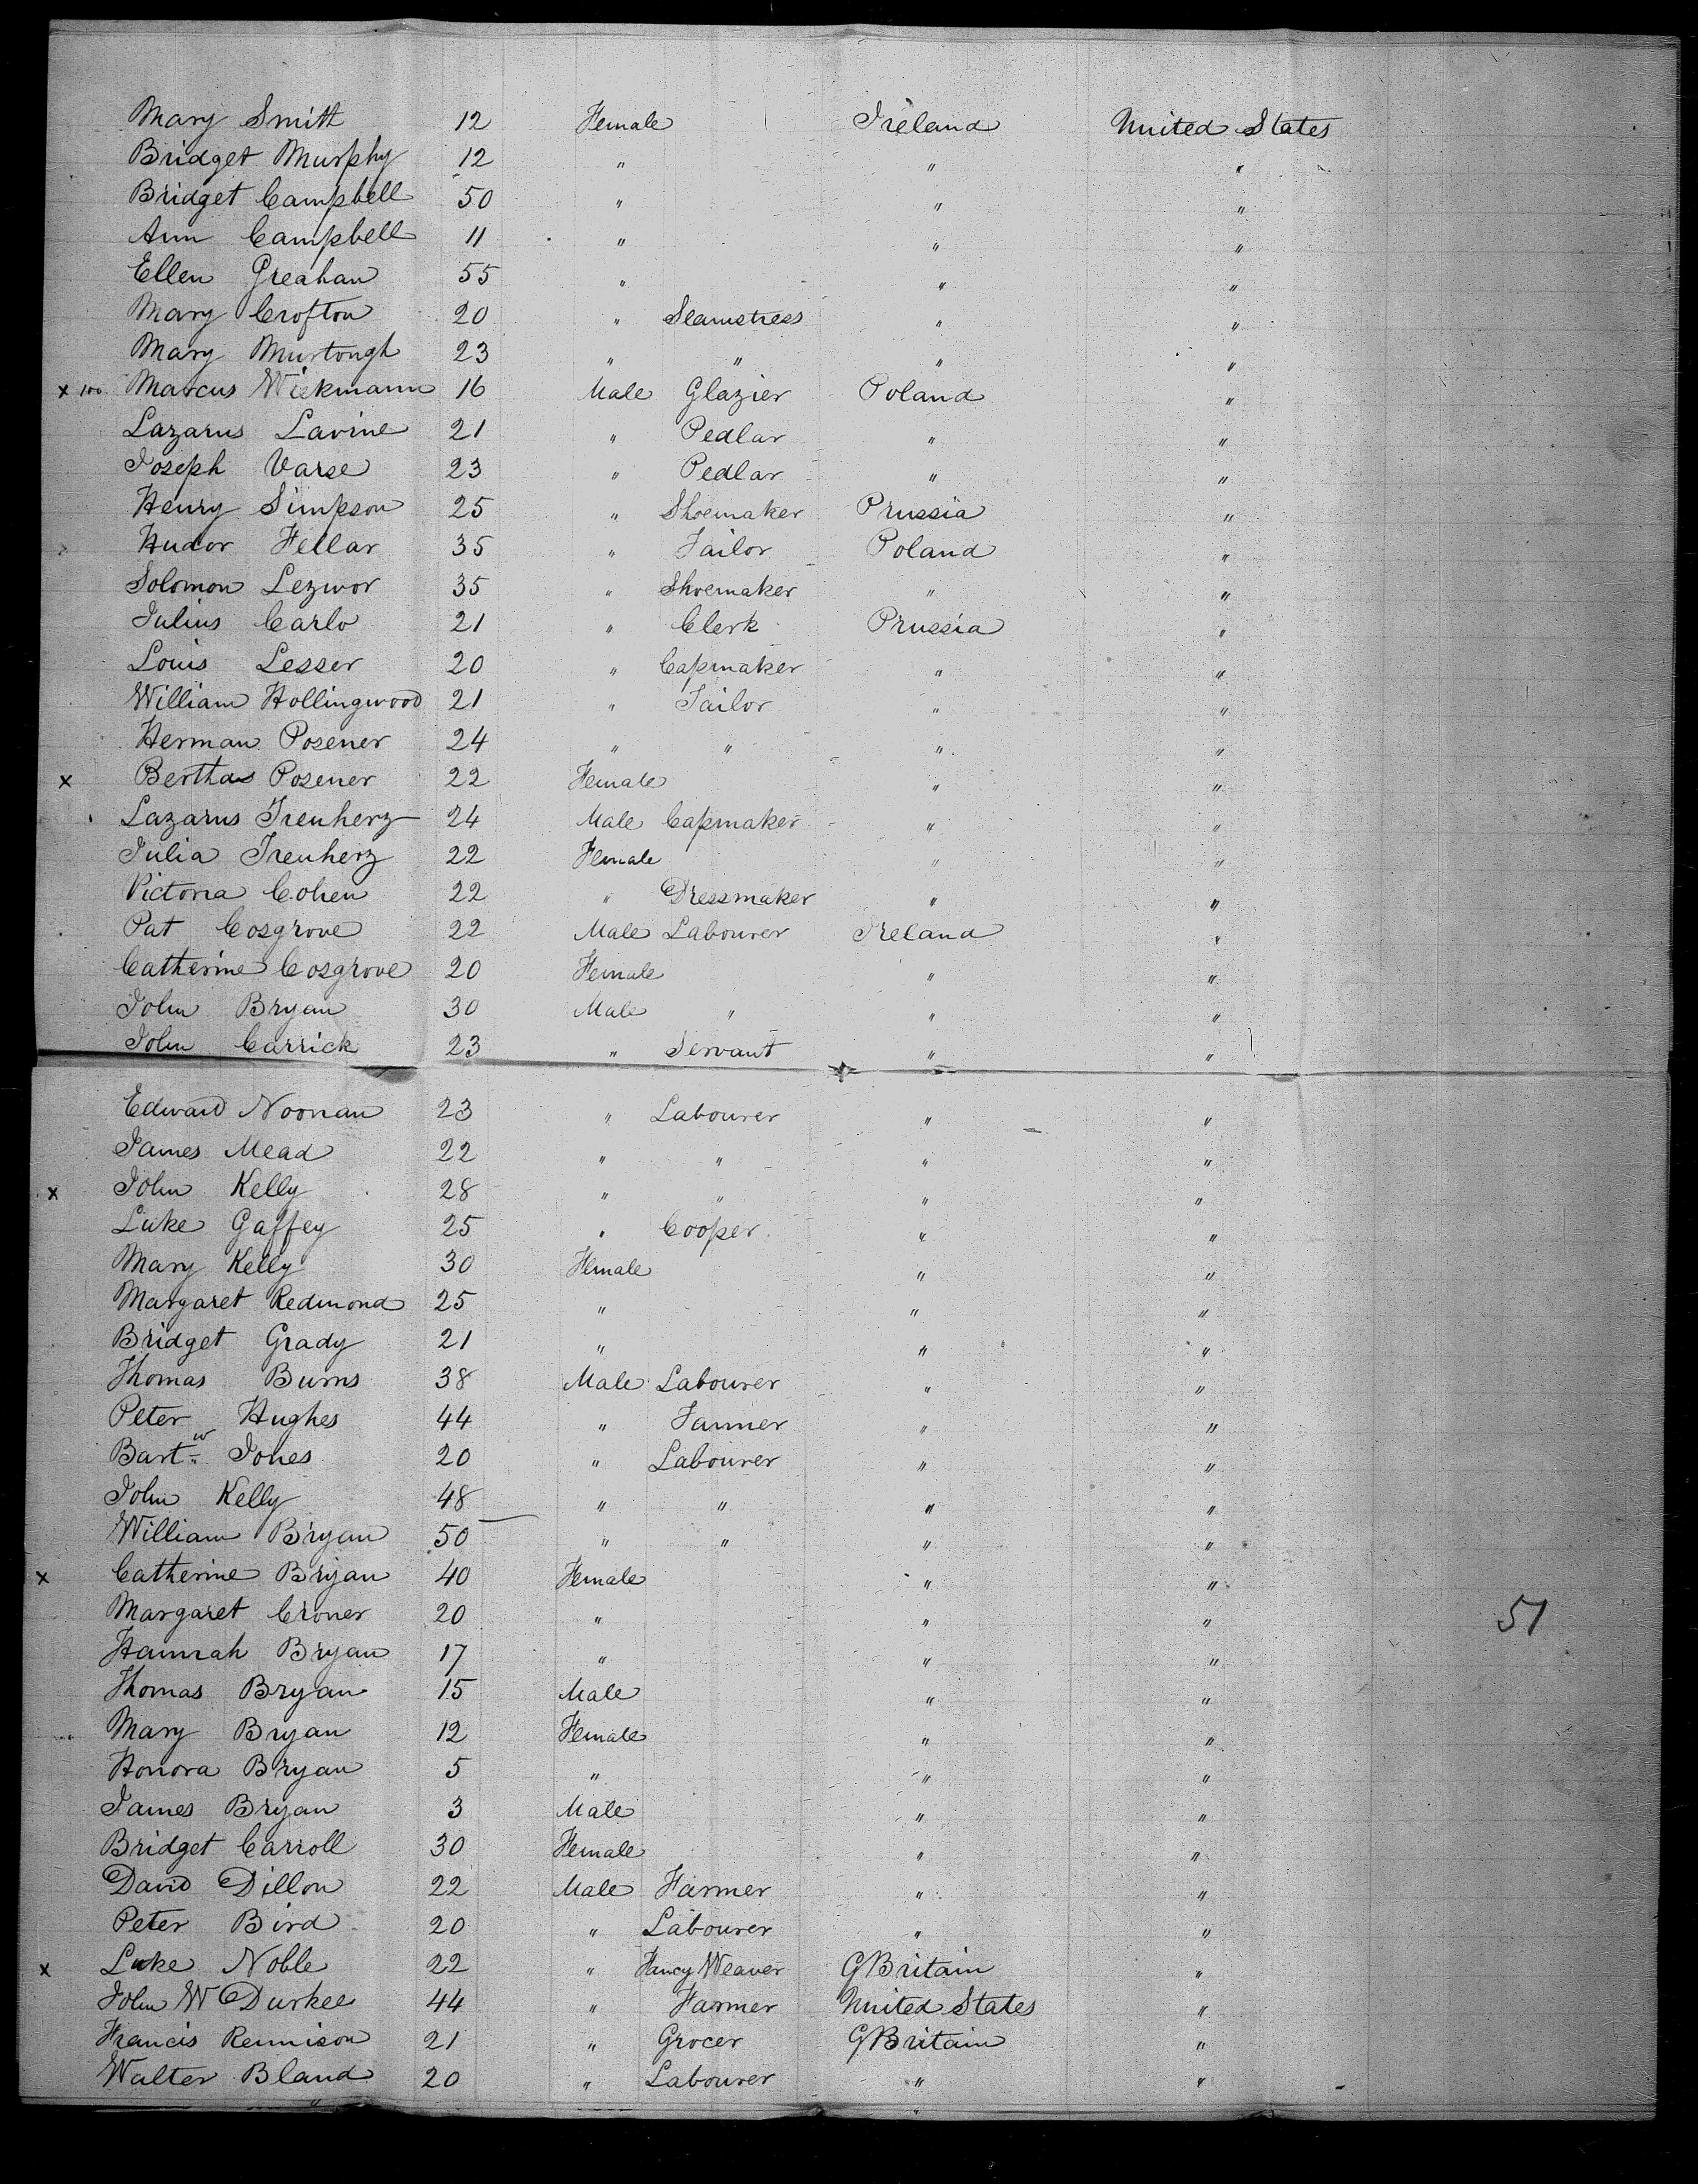 Mary Smith 12 Female Ireland United States
Bridget Murphy 12 " " "
Bridget Campbell 50 " " "
Ann Campbell 11 " " "
Ellen Greahan 55 " " "
Mary Crofton 20 " Seamstress " "
Mary Murtough 23 " " " "
x 100 Marcus Wickmann 16 Male Glazier Poland "
Lazarus Lavine 21 " Pedlar " "
Joseph Varse 23 " Pedlar " "
Henry Simpson 25 " Shoemaker Prussia "
Hudor Fellar 35 " Tailor Poland "
Solomon Lezwor 35 " Shoemaker " "
Julius Carlo 21 " Clerk Prussia "
Louis Lesser 20 " Capmaker " "
William Hollingwood 21 " Tailor " "
Herman Posener 24 " " " "
x Bertha Posener 22 Female " "
Lazarus Treuherz 24 Male Capmaker " "
Julia Treuherz 22 Female " "
Victoria Cohen 22 " Dressmaker " "
Pat Cosgrove 22 Male Labourer Ireland "
Catherine Cosgrove 20 Female " "
John Bryan 30 Male " " "
John Carrick 23 " Servant " "
Edward Noonan 23 " Labourer " "
James Mead 22 " " " "
x John Kelly 28 " " " "
Luke Gaffey 25 " Cooper " "
Mary Kelly 30 Female " "
Margaret Redmond 25 " " "
Bridget Grady 21 " " "
Thomas Burns 38 Male Labourer " "
Peter Hughes 44 " Farmer " "
Bartw Jones 20 " Labourer " "
John Kelly 48 " " " "
William Bryan 50 " " " "
x Catherine Bryan 40 Female " "
Margaret Croner 20 " " " 51
Hannah Bryan 17 " " "
Thomas Bryan 15 Male " "
Mary Bryan 12 Female " "
Honora Bryan 5 " " "
James Bryan 3 Male " "
Bridget Carroll 30 Female " "
David Dillon 22 Male Farmer " "
Peter Bird 20 " Labourer " "
x Luke Noble 22 " Fancy Weaver GBritain "
John W Durkee 44 " Farmer United States "
Francis Rennison 21 " Grocer GBritain "
Walter Bland 20 " Labourer " "